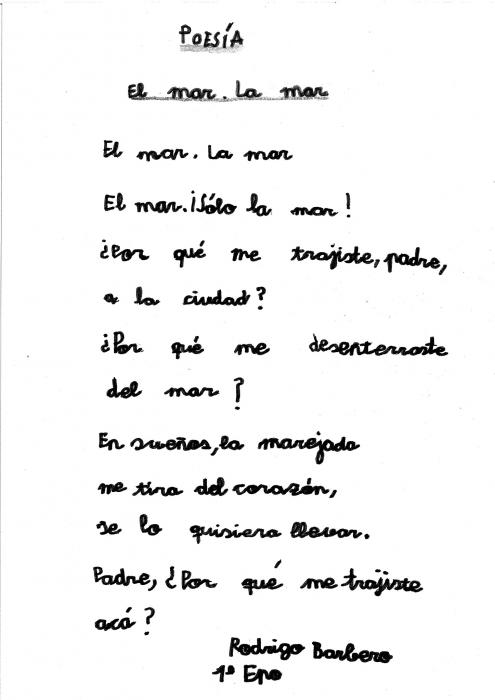 POESÍA
El mar. La mar
El mar. La mar
El mar. ¡Sólo la mar!
¿Por qué me trajiste, padre,
a la ciudad?
¿Por qué me desenterraste
del mar?
En sueños, la marejada
me tira del corazón,
se lo quisiera llevar.
Padre, ¿Por qué me trajiste
acá?
Rodrigo Barbero
1º Epo